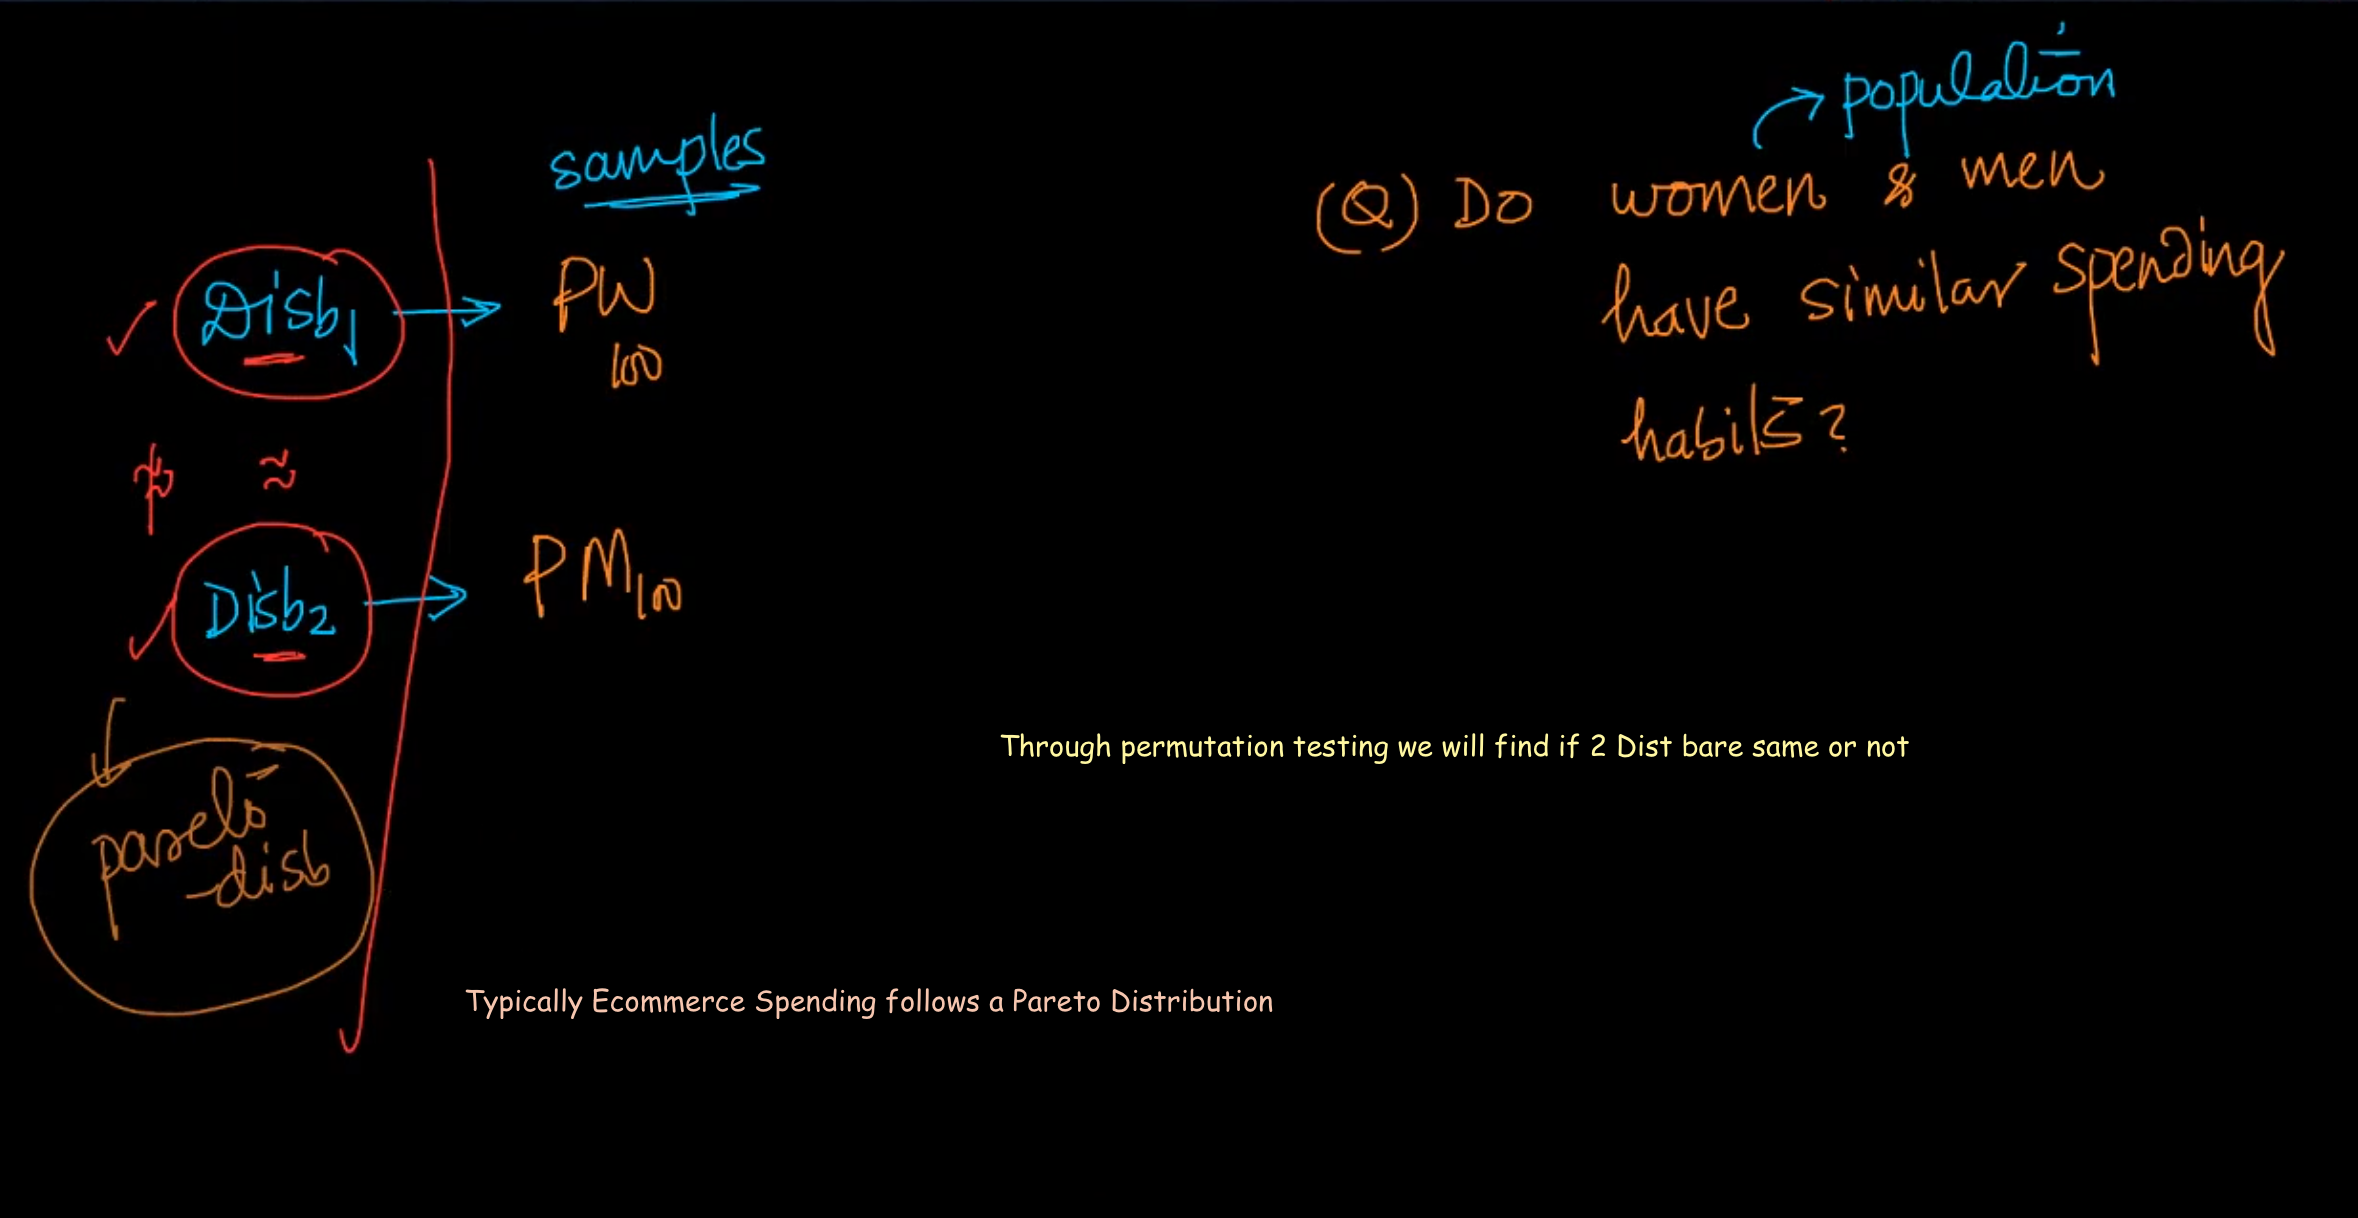 samples
Disb1
PW
100
≉ ≈
Disb2
PM100
pareto
-disb
population
(Q) Do women & men
have similar spending
habits?
Through permutation testing we will find if 2 Dist bare same or not
Typically Ecommerce Spending follows a Pareto Distribution